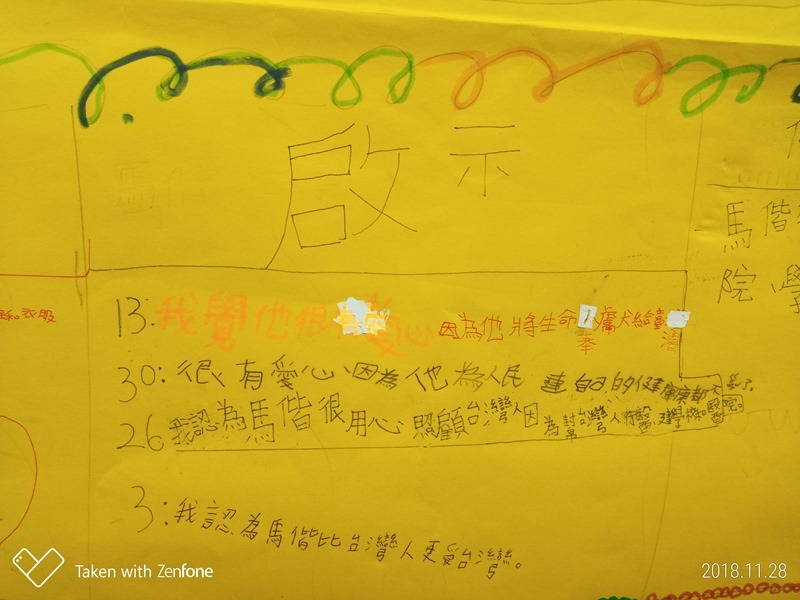 啟示
13:我覺他很有愛心因為他將生命奉獻給臺灣
30:很有愛心、因為他為人民 連自己的健康都
26 我認為馬偕很用心照顧台灣人因為幫台灣人 建學校和醫院。
3:我認為馬偕比台灣人更愛台灣。
馬偕
院 學
和衣服
Taken with Zenfone
2018.11.28